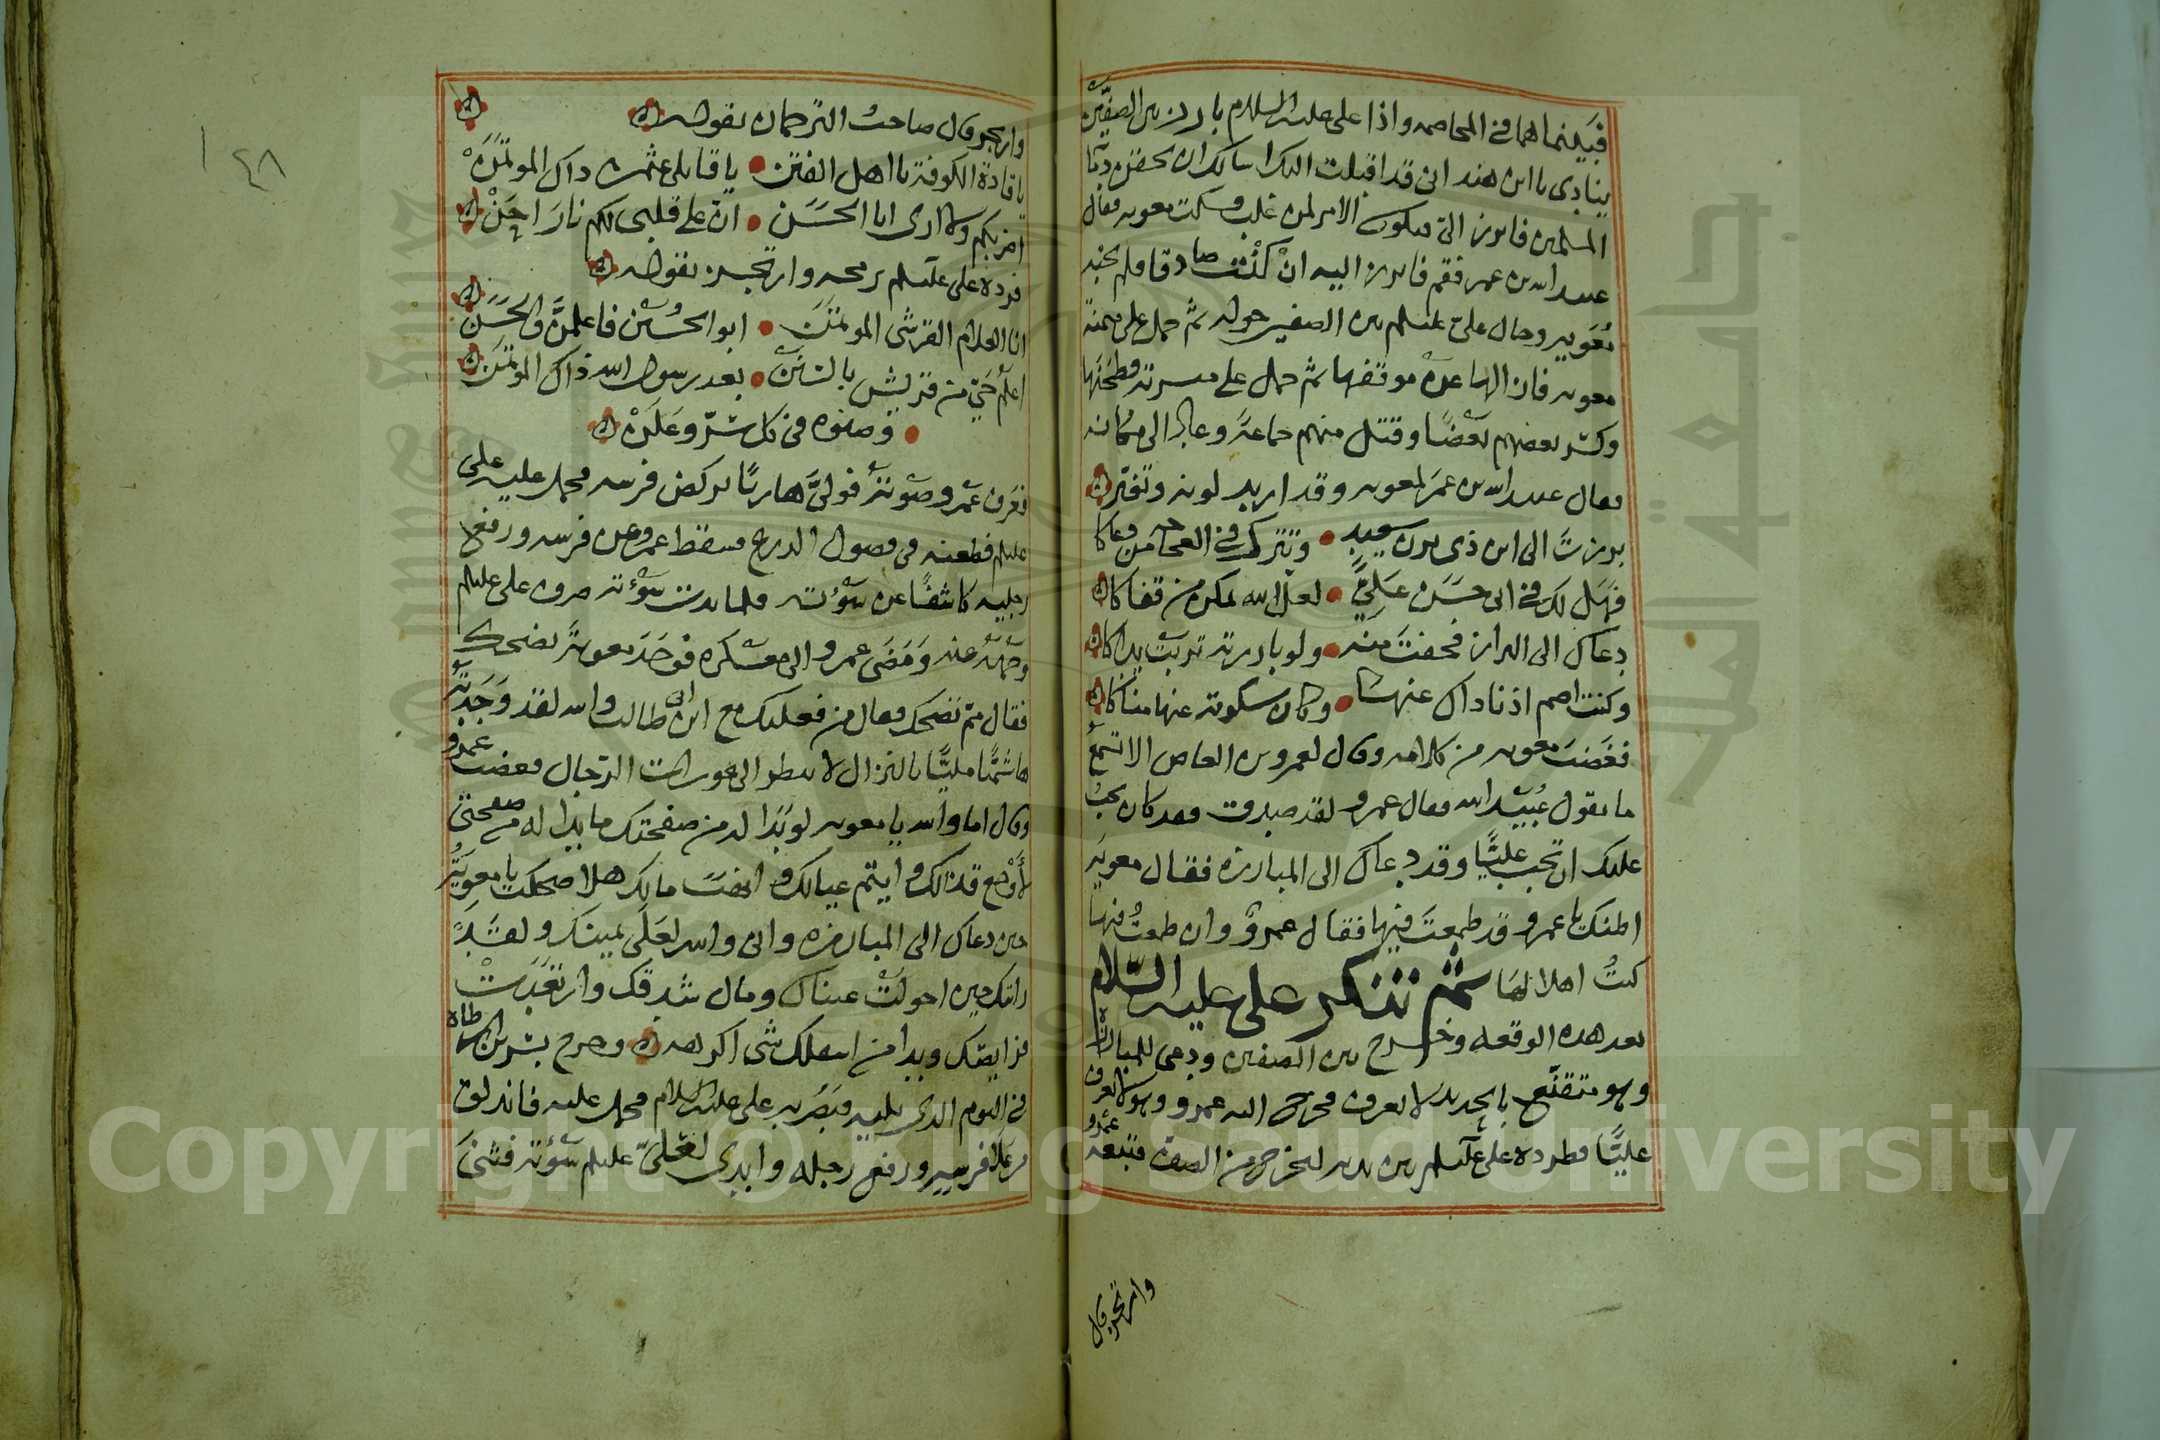 فبينما هما في المخاصمه واذا على عليه السلام بارز بين الصفين
ينادى يا ابن هند انى قد اقبلت اليك اسالك ان تحقن دمآ
المسلمين فابرز الىّ فيكون الامر لمن غلب فسكت معويه فقال
عبيد الله بن عمر فقم فابرز اليه انْ كُنْتَ صادقا فلم يجبه
مُعَوِيه وجال علىّ عليلم بين الصفين جوله ثمّ حمل على ميمنة
معويه فازالها عن موقفها ثم حمل على ميسرته فطحنها
وكسّر بعضهم بَعْضًا وقتل منهم جماعةً وعاد الى مكانه
فقال عبيد الله بن عمر لمعويه وقد اربد لونه وتغيّر
برزتَ الى ابن ذى يزن سعيد وتترك في العجاجة من دعاكا
فَهَل لك في ابى حسَن عَلِيٍّ لعل الله يمكن من قفاكا
دعاك الى البراز فخفتَ منه ولو بارزته تربَتْ يداكا
وكنت اصم اذ ناداك عنها وكان سكوته عنها مناكا
فغَضبَ معويه من كلامه وقال لعمرو بن العاص الا تسمعُ
ما يقول عُبيْد الله فقال عمرو لقد صدق وقد كان يجبُ
عليك ان تجيب عليّا وقد دعاك الى المبارزه فقال معويَه
اظنك يا عمرو قد طمعتَ فيها فقال عمروٌ وان طمعتُ فيها
كنتُ اهلا لهَا ثم تنكر على عليه السّلام
بعد هذه الوقعه وخرج بين الصفين ودعى للمبارزة
وهو متقنّع بالحديد لا يعرف فخرج اليه عمرو وهو لا يعرف
عليّا فطرده على عليلم بين يديه ليخرجه من الصف فتبعه عمرو
وارتجز وقال
١٤٨
وارتجز وقال صاحب الترجمان بقوله
يا قادة الكوفة يا اهل الفتن يا قاتلى عثمان ذاك الموتمَنْ
اضربكم ولا ارى ابا الحَسَن انّ على قلبى لكم نارَ احَنْ
فرده على عليلم برمحه وارتجز بقوله
انا الغلام القرشى الموتمَن ابو الحُسَيْن فاعلمنّ والحَسَن
اعلمُ حَيّ من قريش بالسنَنْ بعد رسول الله ذاك الموتمَن
وصنوه فى كل سرّ وعَلَنْ
فعرف عمرو صَوْتَهُ فولّى هاربًا يركض فرسه فحمل عليه على
عليلم فطعنه فى فصول الدرع فسقط عمرو عن فرسه ورفع
رجليه كاشفًا عن سَوْءته فلما بدت سَوْءته صرف على عليلم
وجهَهُ عنه وَمَضَى عمرو الى معسْكره فوَجَدَ معويَة يضحك
فقال ممّ تضحك فقال من فعلك مع ابن ابى طالب والله لقد وَجَدْتَهُ
هاشميّا مليّا بالنزال لا ينظر الى عورات الرّجال فغضب عمرو
وقال اما والله يا معويه لو بَدَا له من صفحتك ما بدا له من صفحتى
لأَوْجع قذالكَ و ايتم عيالك و انهبَ مالك هلا ضحكت يا معويَة
حين دعاك الى المبارزه وانى والله لعَلَى يمينك ولقد
رايتك حين احولّتْ عيناك ومال شدقك وارتعَدتْ
فرايصك وبدا من اسفلك شى اكرهه وخرج بسر بن ارطاه
فى اليوم الذى يليه فبَصُر به على عليه السلام فحمل عليه فانزلق
عن ظهر فرسه ورفع رجله وابدى لعَلىّ عليلم سَوْءته فثنى